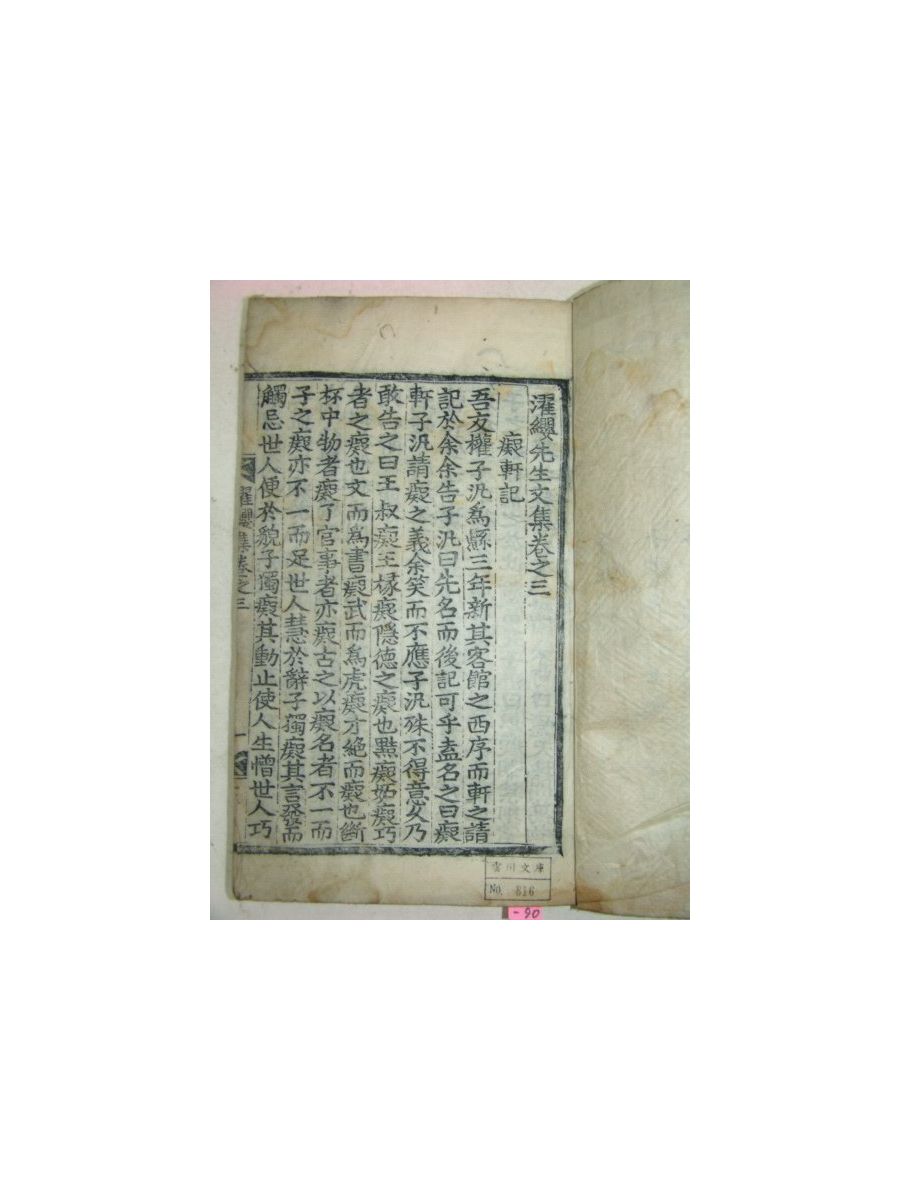 濯纓先生文集卷之三
癡軒記
吾友權子汎爲縣三年新其客館之西序而軒之請
記於余余告子汎曰先名而後記可乎盍名之曰癡
軒子汎請癡之義余笑而不應子汎殊不得意久乃
敢告之曰王叔癡王掾癡隱德之癡也黠癡妬癡巧
者之癡也文而爲書癡武而爲虎癡才絶而癡也斷
杯中物者癡了官事者亦癡古之以癡名者不一而
子之癡亦不一而足世人慧於辭子獨癡其言發而
觸忌世人便於貌子獨癡其動止使人生憎世人巧
濯纓集卷之三
一
雲川文庫
No. 816
-90